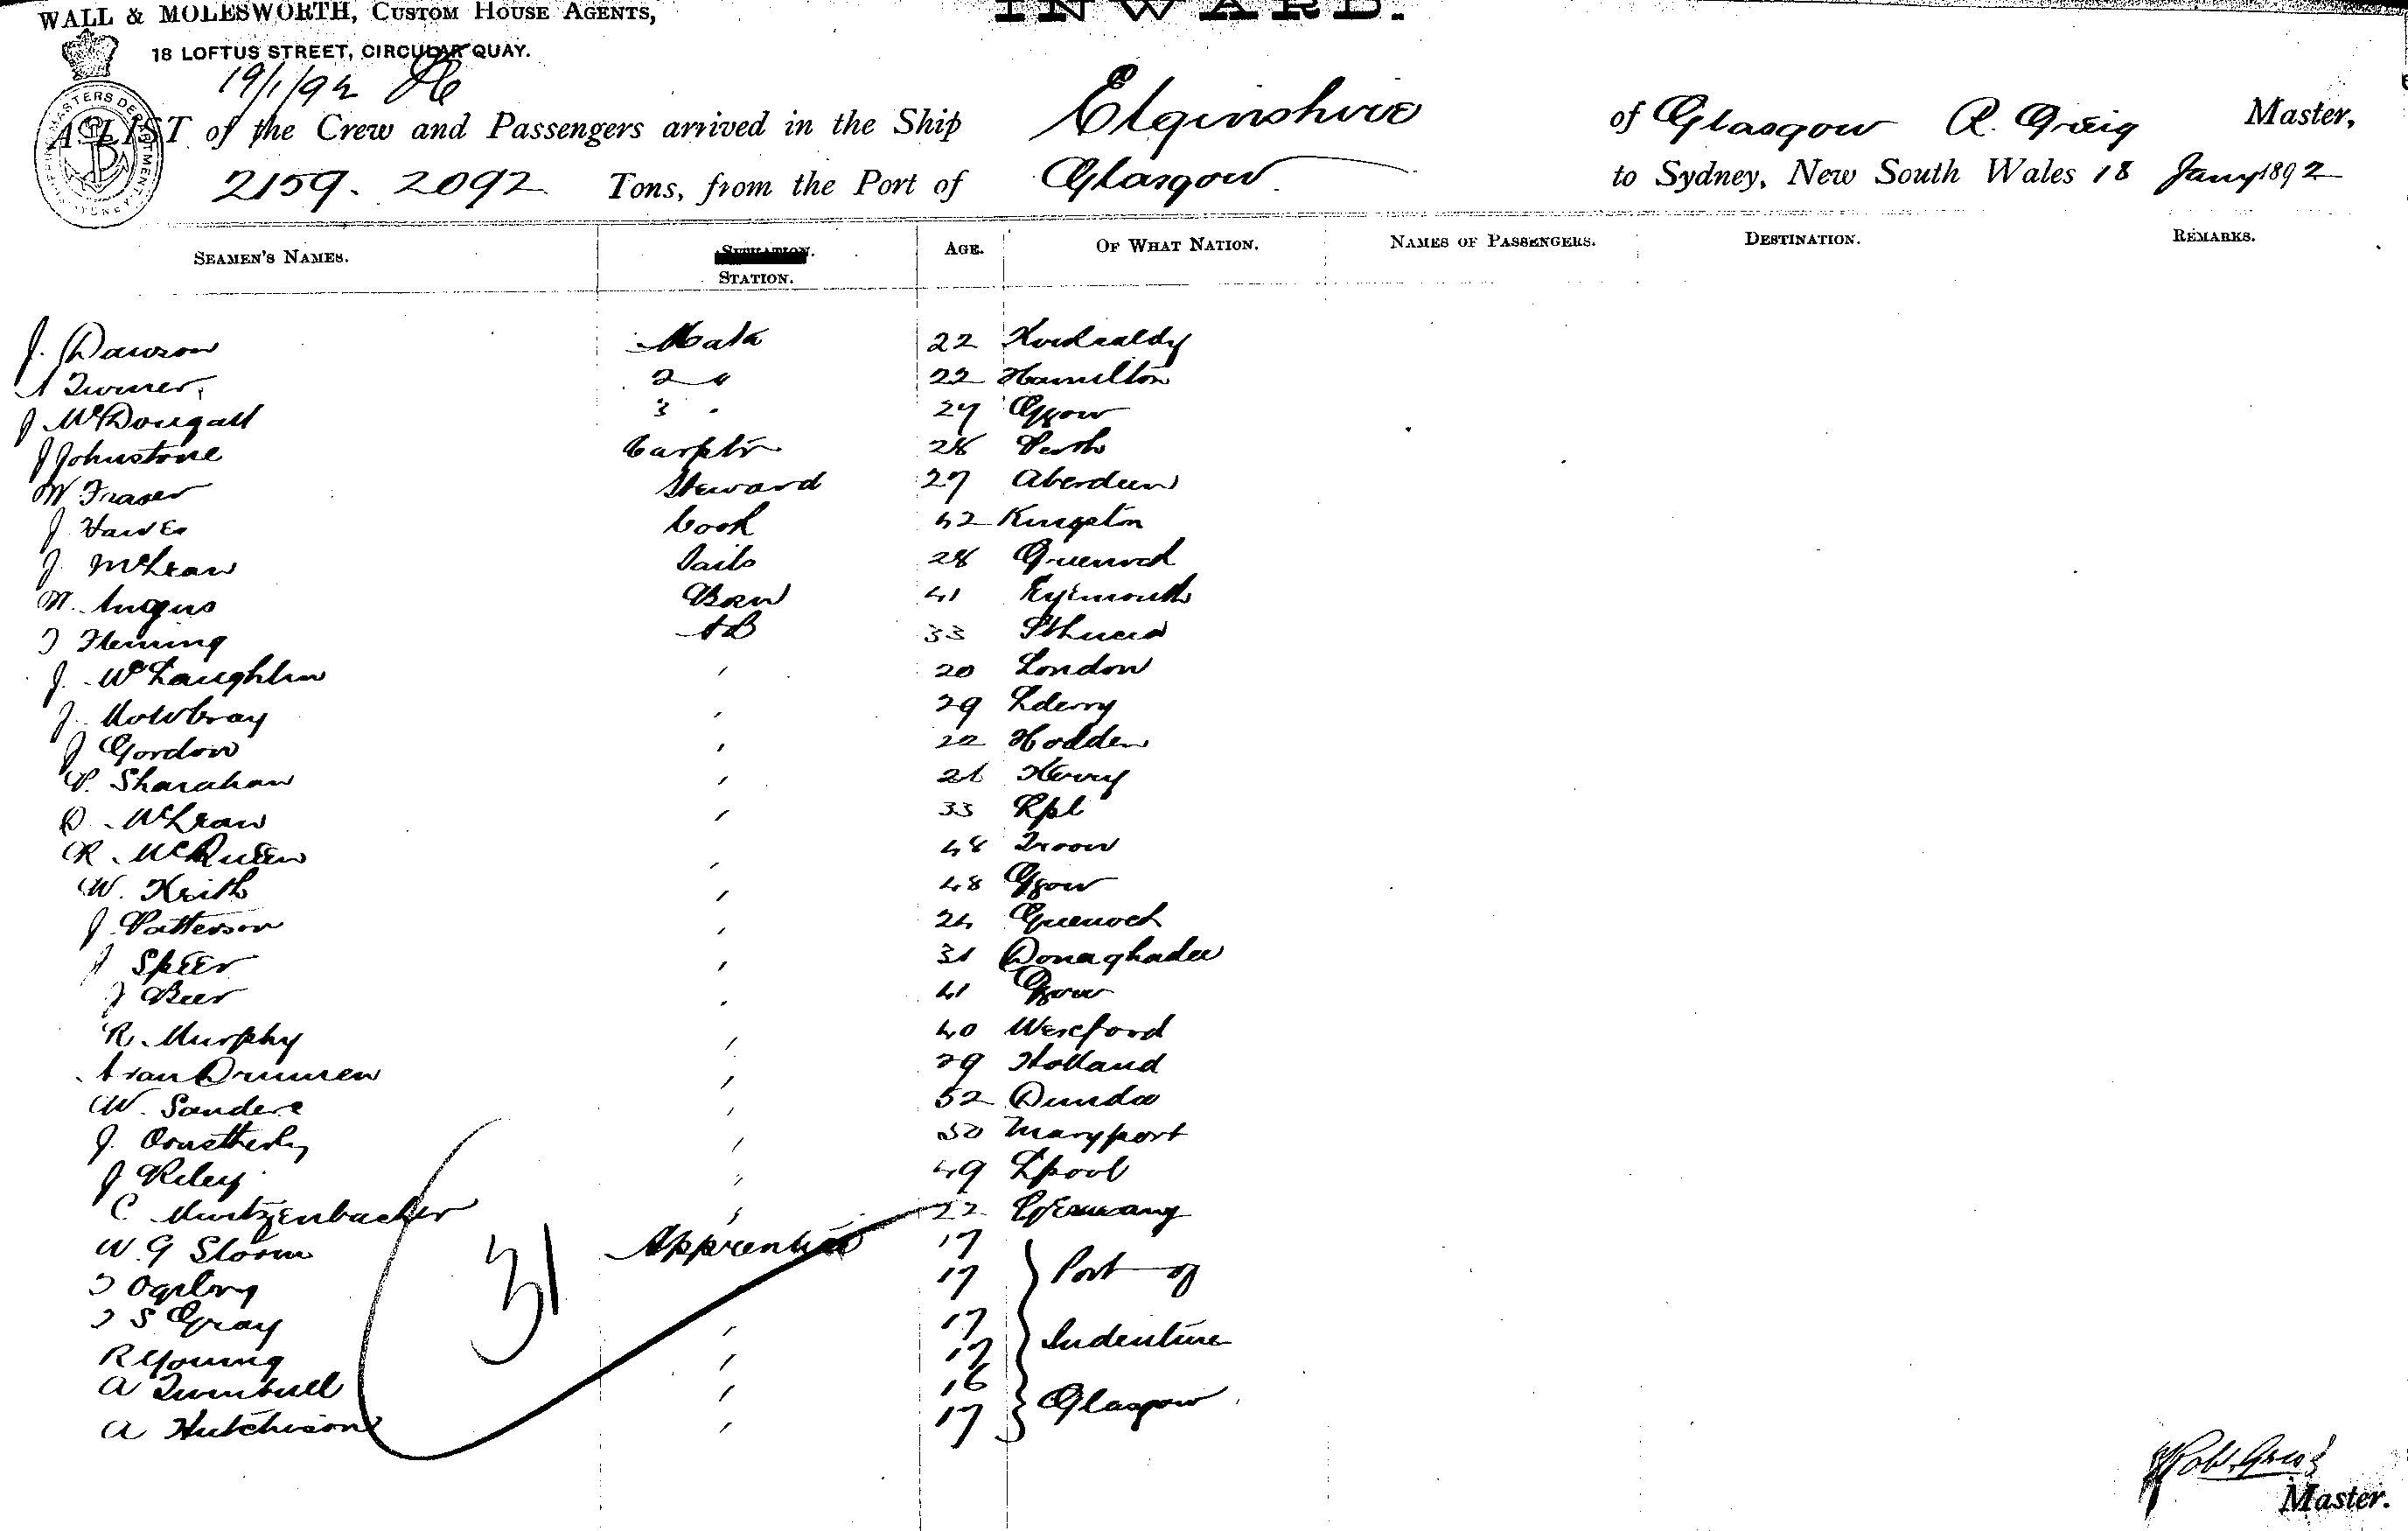 WALL & MOLESWORTH, CUSTOM HOUSE AGENTS,
INWARD.
18 LOFTUS STREET, CIRCULAR QUAY.
19/1/92
A LIST of the Crew and Passengers arrived in the Ship Elginshire of Glasgow R. Greig Master,
2159. 2092 Tons, from the Port of Glasgow to Sydney, New South Wales 18 Jany 1892
SEAMEN'S NAMES. STATION. AGE. OF WHAT NATION. NAMES OF PASSENGERS. DESTINATION. REMARKS.
J. Dawson Mate 22 Kirkcaldy
A Turner 2 " 22 Hamilton
J McDougall 3 " 27 Ggow
J Johnstone Carptr 28 Perth
W Fraser Steward 27 Aberdeen
J. Hawes Cook 42 Kingston
J. McLean Sails 28 Greenock
W. Angus Bosn 41 Eyemouth
T Fleming AB 33 St Lucia
J. McLaughlin " 20 London
J. Mowbray " 29 Lderry
J Gordon " 22 Hodden
P. Sharahan " 26 Kerry
D. McLean " 33 Lpl
R. McQueen " 48 Troon
W. Keith " 48 Ggow
J. Patterson " 24 Greenock
J Speer " 31 Donaghadee
J Beer " 41 Ggow
R. Murphy " 40 Wexford
A van Drunen " 29 Holland
W. Sanders " 52 Dundee
J. " 50 Maryport
J Riley " 49 Lpool
C Muntzenbacher " 22 Germany
W. G Storm Apprentice 17
T Ogilvy 17 Port of
T S Gray " 17
R Young " 17 Indenture
A Turnbull " 16
A Hutchison " 17 Glasgow
31
Robt. Greig
Master.